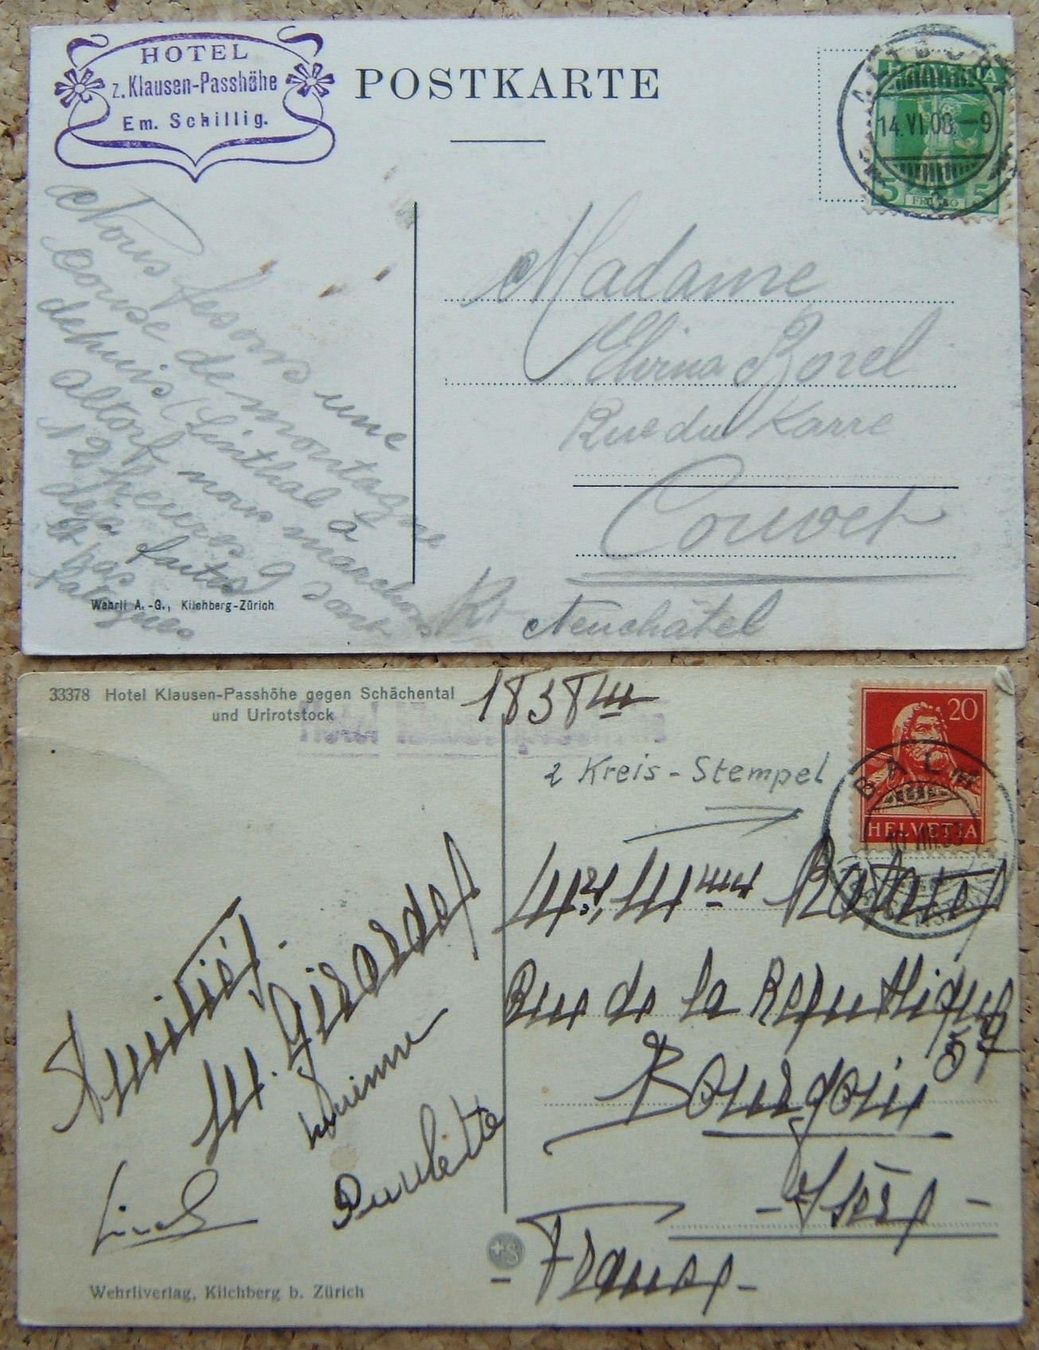 HOTEL
z. Klausen-Passhöhe
Em. Schillig.
POSTKARTE
HELVETIA
ALTDORF
14.VI.08.–9
5 FRANCO 5
Nous fesons une
course de montagne
depuis (Linthal à
Altorf nous marchons
12 heures 9 sont
déja faites
& pas
fatigues
Madame
Elvina Borel
Rue du
Couvet
Kt Neuchâtel
Wehrli A.-G., Kilchberg-Zürich
33378 Hotel Klausen-Passhöhe gegen Schächental
und Urirotstock
1838 m
2 Kreis-Stempel
20
HELVETIA
BALM
Mr, Mme
Rue de la Republique
57
Bourgoin
- Isère -
- France -
Amitiés.
M. Girardet
Paulette
Wehrliverlag, Kilchberg b. Zürich